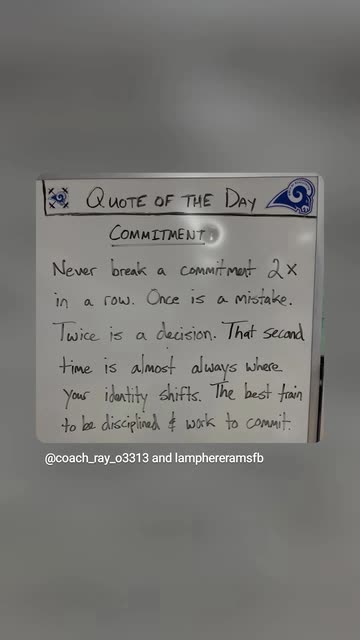 QUOTE OF THE DAY
COMMITMENT.
Never break a commitment 2x
in a row. Once is a mistake.
Twice is a decision. That second
time is almost always where
your identity shifts. The best train
to be disciplined & work to commit.
@coach_ray_o3313 and lamphereramsfb